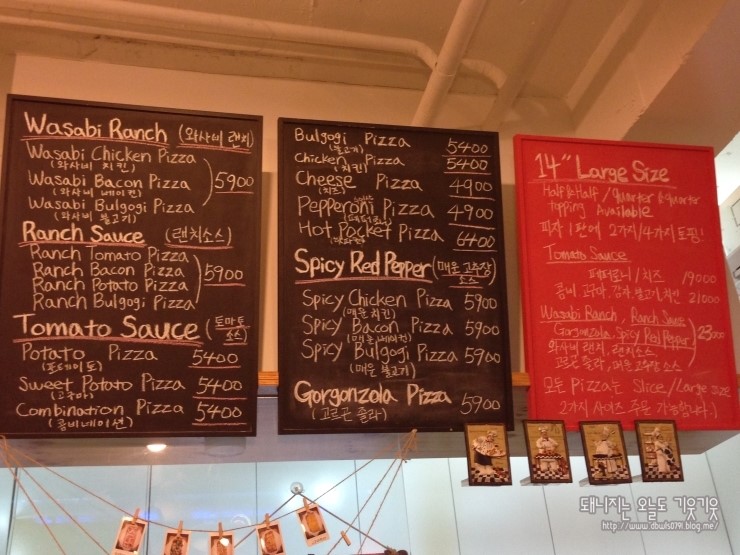 Wasabi Ranch (와사비 랜치)
Wasabi Chicken Pizza
(와사비 치킨)
Wasabi Bacon Pizza 5900
(와사비 베이컨)
Wasabi Bulgogi Pizza
(와사비 불고기)
Ranch Sauce (랜치소스)
Ranch Tomato Pizza
Ranch Bacon Pizza 5900
Ranch Potato Pizza
Ranch Bulgogi Pizza
Tomato Sauce (토마토 소스)
Potato Pizza 5400
(포테이토)
Sweet Potato Pizza 5400
(고구마)
Combination Pizza 5400
(콤비네이션)
Bulgogi Pizza 5400
(불고기)
Chicken Pizza 5400
(치킨)
Cheese Pizza 4900
(치즈)
Pepperoni Pizza 4900
(페퍼로니)
Hot Pocket Pizza 6400
Spicy Red Pepper (매운 고추장 소스)
Spicy Chicken Pizza 5900
(매운 치킨)
Spicy Bacon Pizza 5900
(매운 베이컨)
Spicy Bulgogi Pizza 5900
(매운 불고기)
Gorgonzola Pizza 5900
(고르곤 졸라)
14" Large Size
Half & Half / Quarter & Quarter
topping Available
피자 1판에 2가지/4가지 토핑!
Tomato Sauce
페퍼로니/치즈 19000
콤비, 고구마, 감자, 불고기, 치킨 21000
Wasabi Ranch, Ranch Sauce
Gorgonzola, Spicy Red Pepper 23000
와사비 랜치, 랜치소스
고르곤 졸라, 매운 고추장 소스
모든 Pizza는 Slice/Large size
2가지 사이즈 주문 가능합니다:)
돼니지는 오늘도 기웃기웃
http://www.dbwls0791.blog.me/